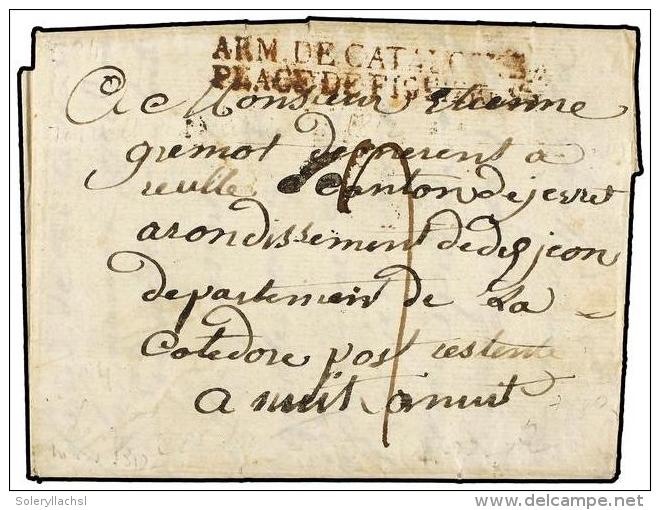 ARM. DE CATALOGNE
PLACE DE FIGUIERES
A Monsieur etienne
gremot demeurent a
reulle canton de jevret
arondissement de degjeon
departemen de La
Cotedore post restente
a nuit a nuit
Soleryllachsl
www.delcampe.net